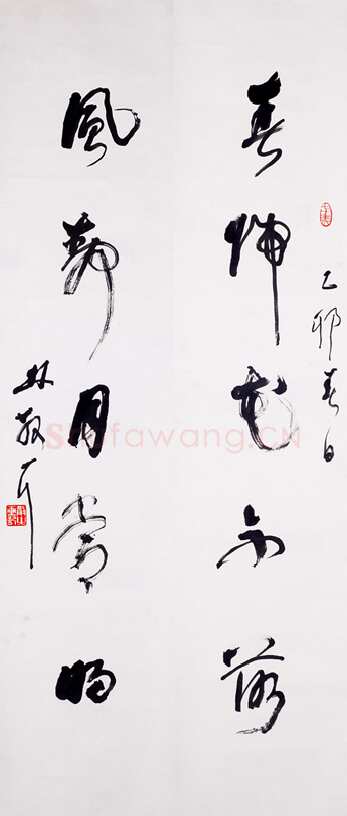 乙卯春日
春歸花不落
風静月常明
林散耳
Shufawang.CN